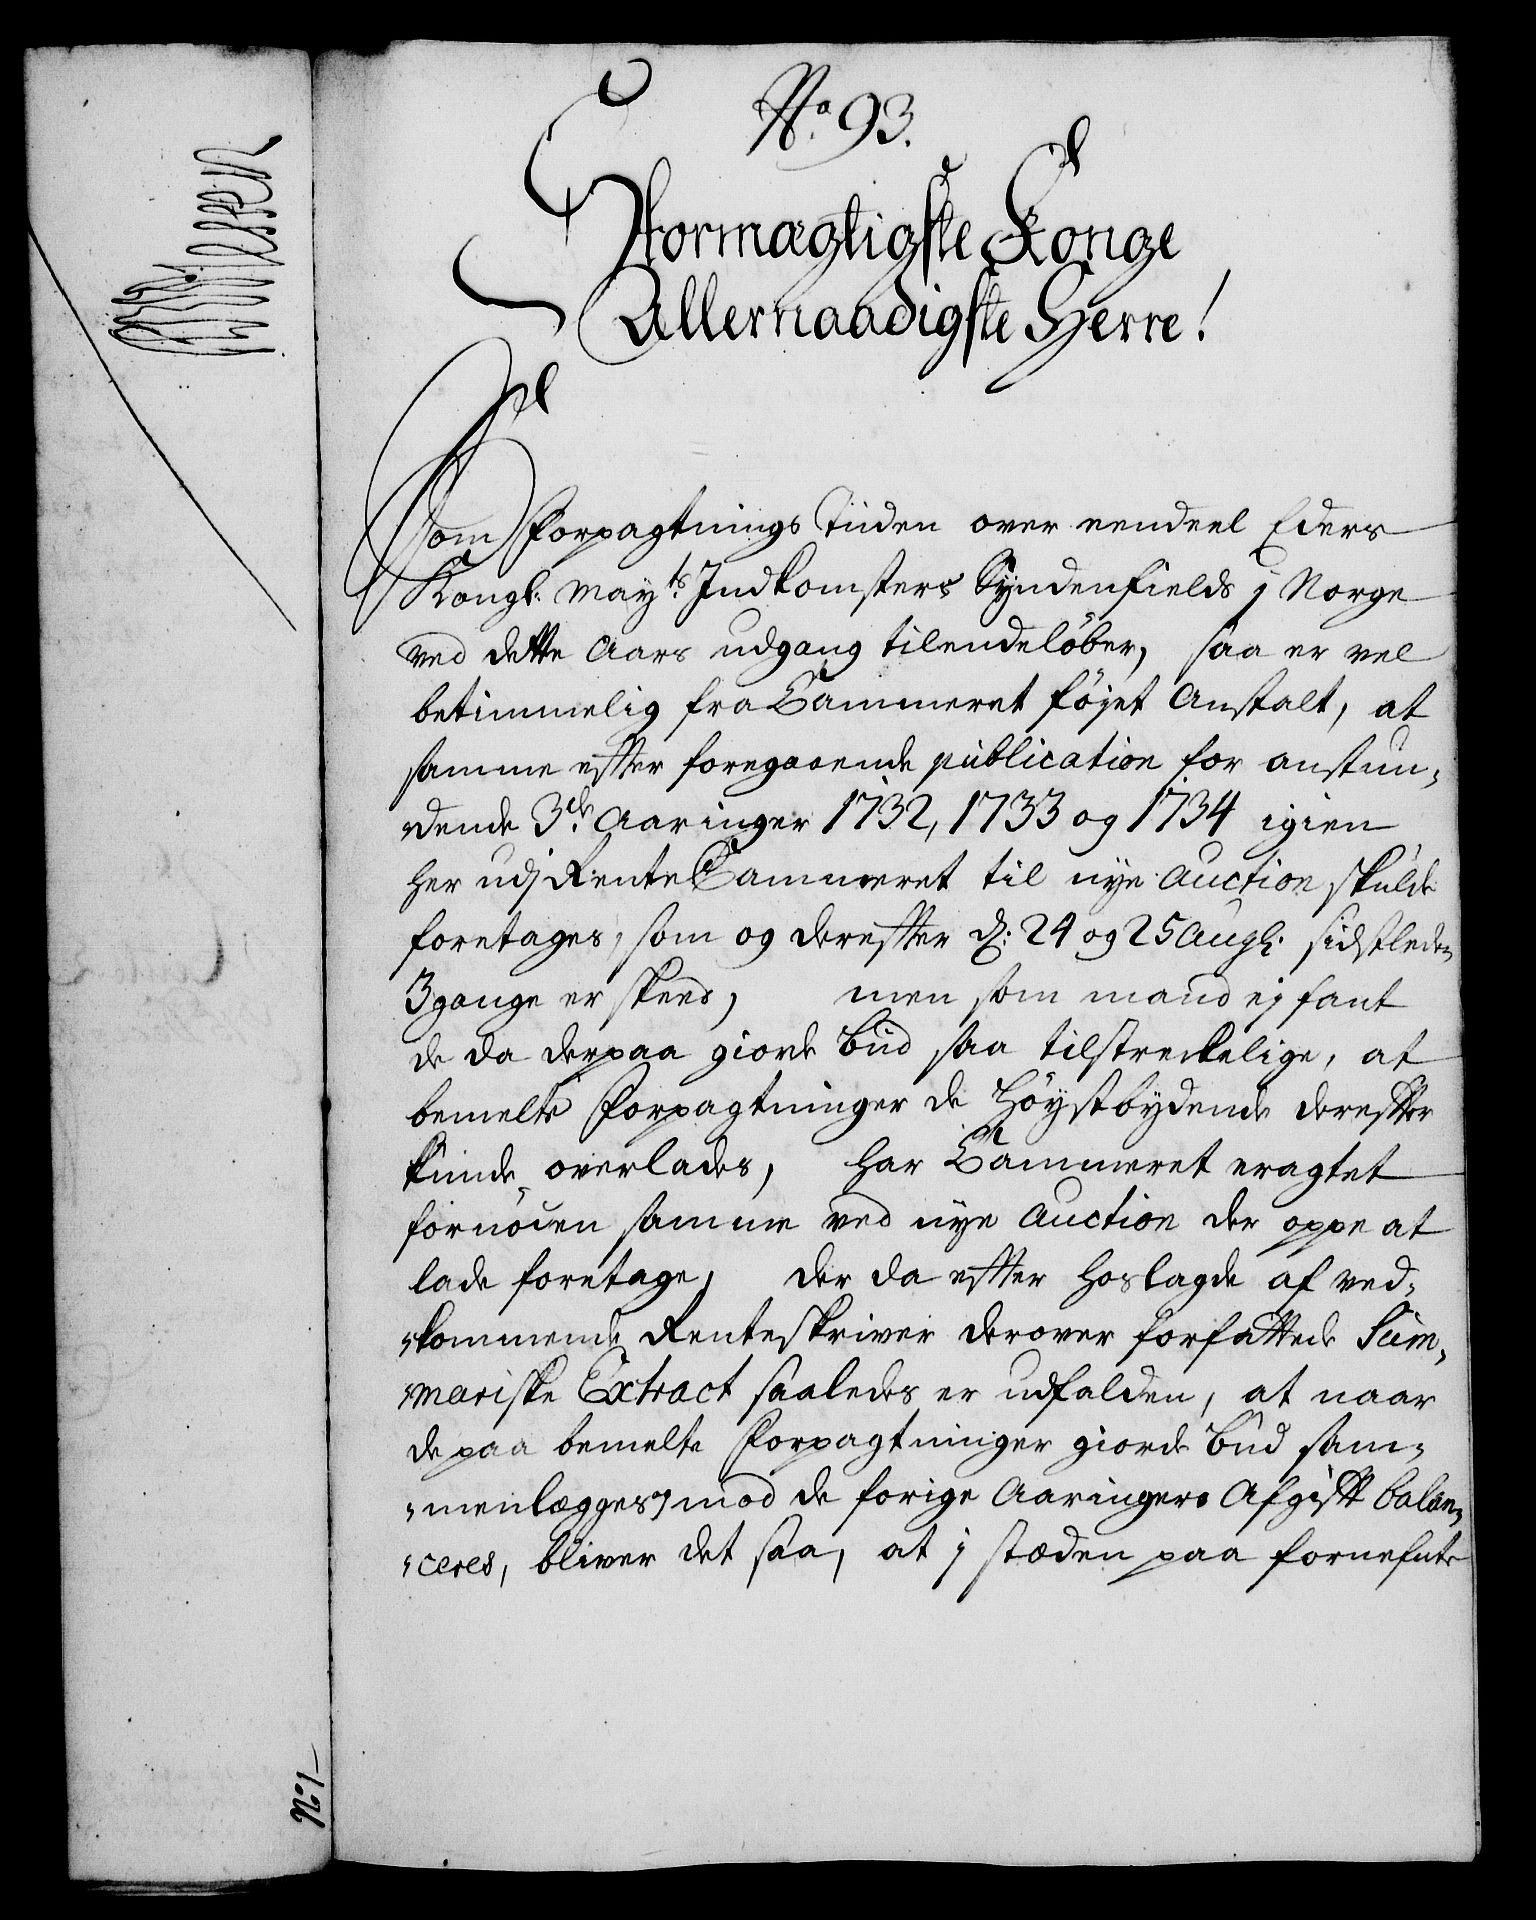 No. 93.
Stormægtigste Konge
Allernaadigste Herre!
Som Forpagtnings Tiiden over eendeel Eders
Kongl: Mayts: Indkomsters Syndenfields j Norge
ved dette Aars udgang tilendelöber, saa er vel
betimmelig fra Cammeret föyet Anstalt, at
samme effter foregaaende publication for anstun-
dende 3de Aaringer 1732, 1733 og 1734 igien
her udj RenteCammeret til nye Auction skulde
foretages, som og dereffter d: 24 og 25 Augh: sidstleden
3 gange er skeed, men som mand ej fant
de da derpaa giorde bud saa tilstreckelige, at
bemelte Forpagtninger de Höystbydende dereffter
kunde overlades, har Cammeret eragtet
fornöden samme ved nye Auction der oppe at
lade foretage, der da effter hoslagde af ved-
kommende Renteskriver derover forfattede Sum-
mariske Extract saaledes er udfalden, at naar
de paa bemelte Forpagtninger giorde bud sam-
menlægges, mod de forige Aaringers Afgifft balan-
ceres, bliver det saa, at j stæden paa fornefnte
No 1